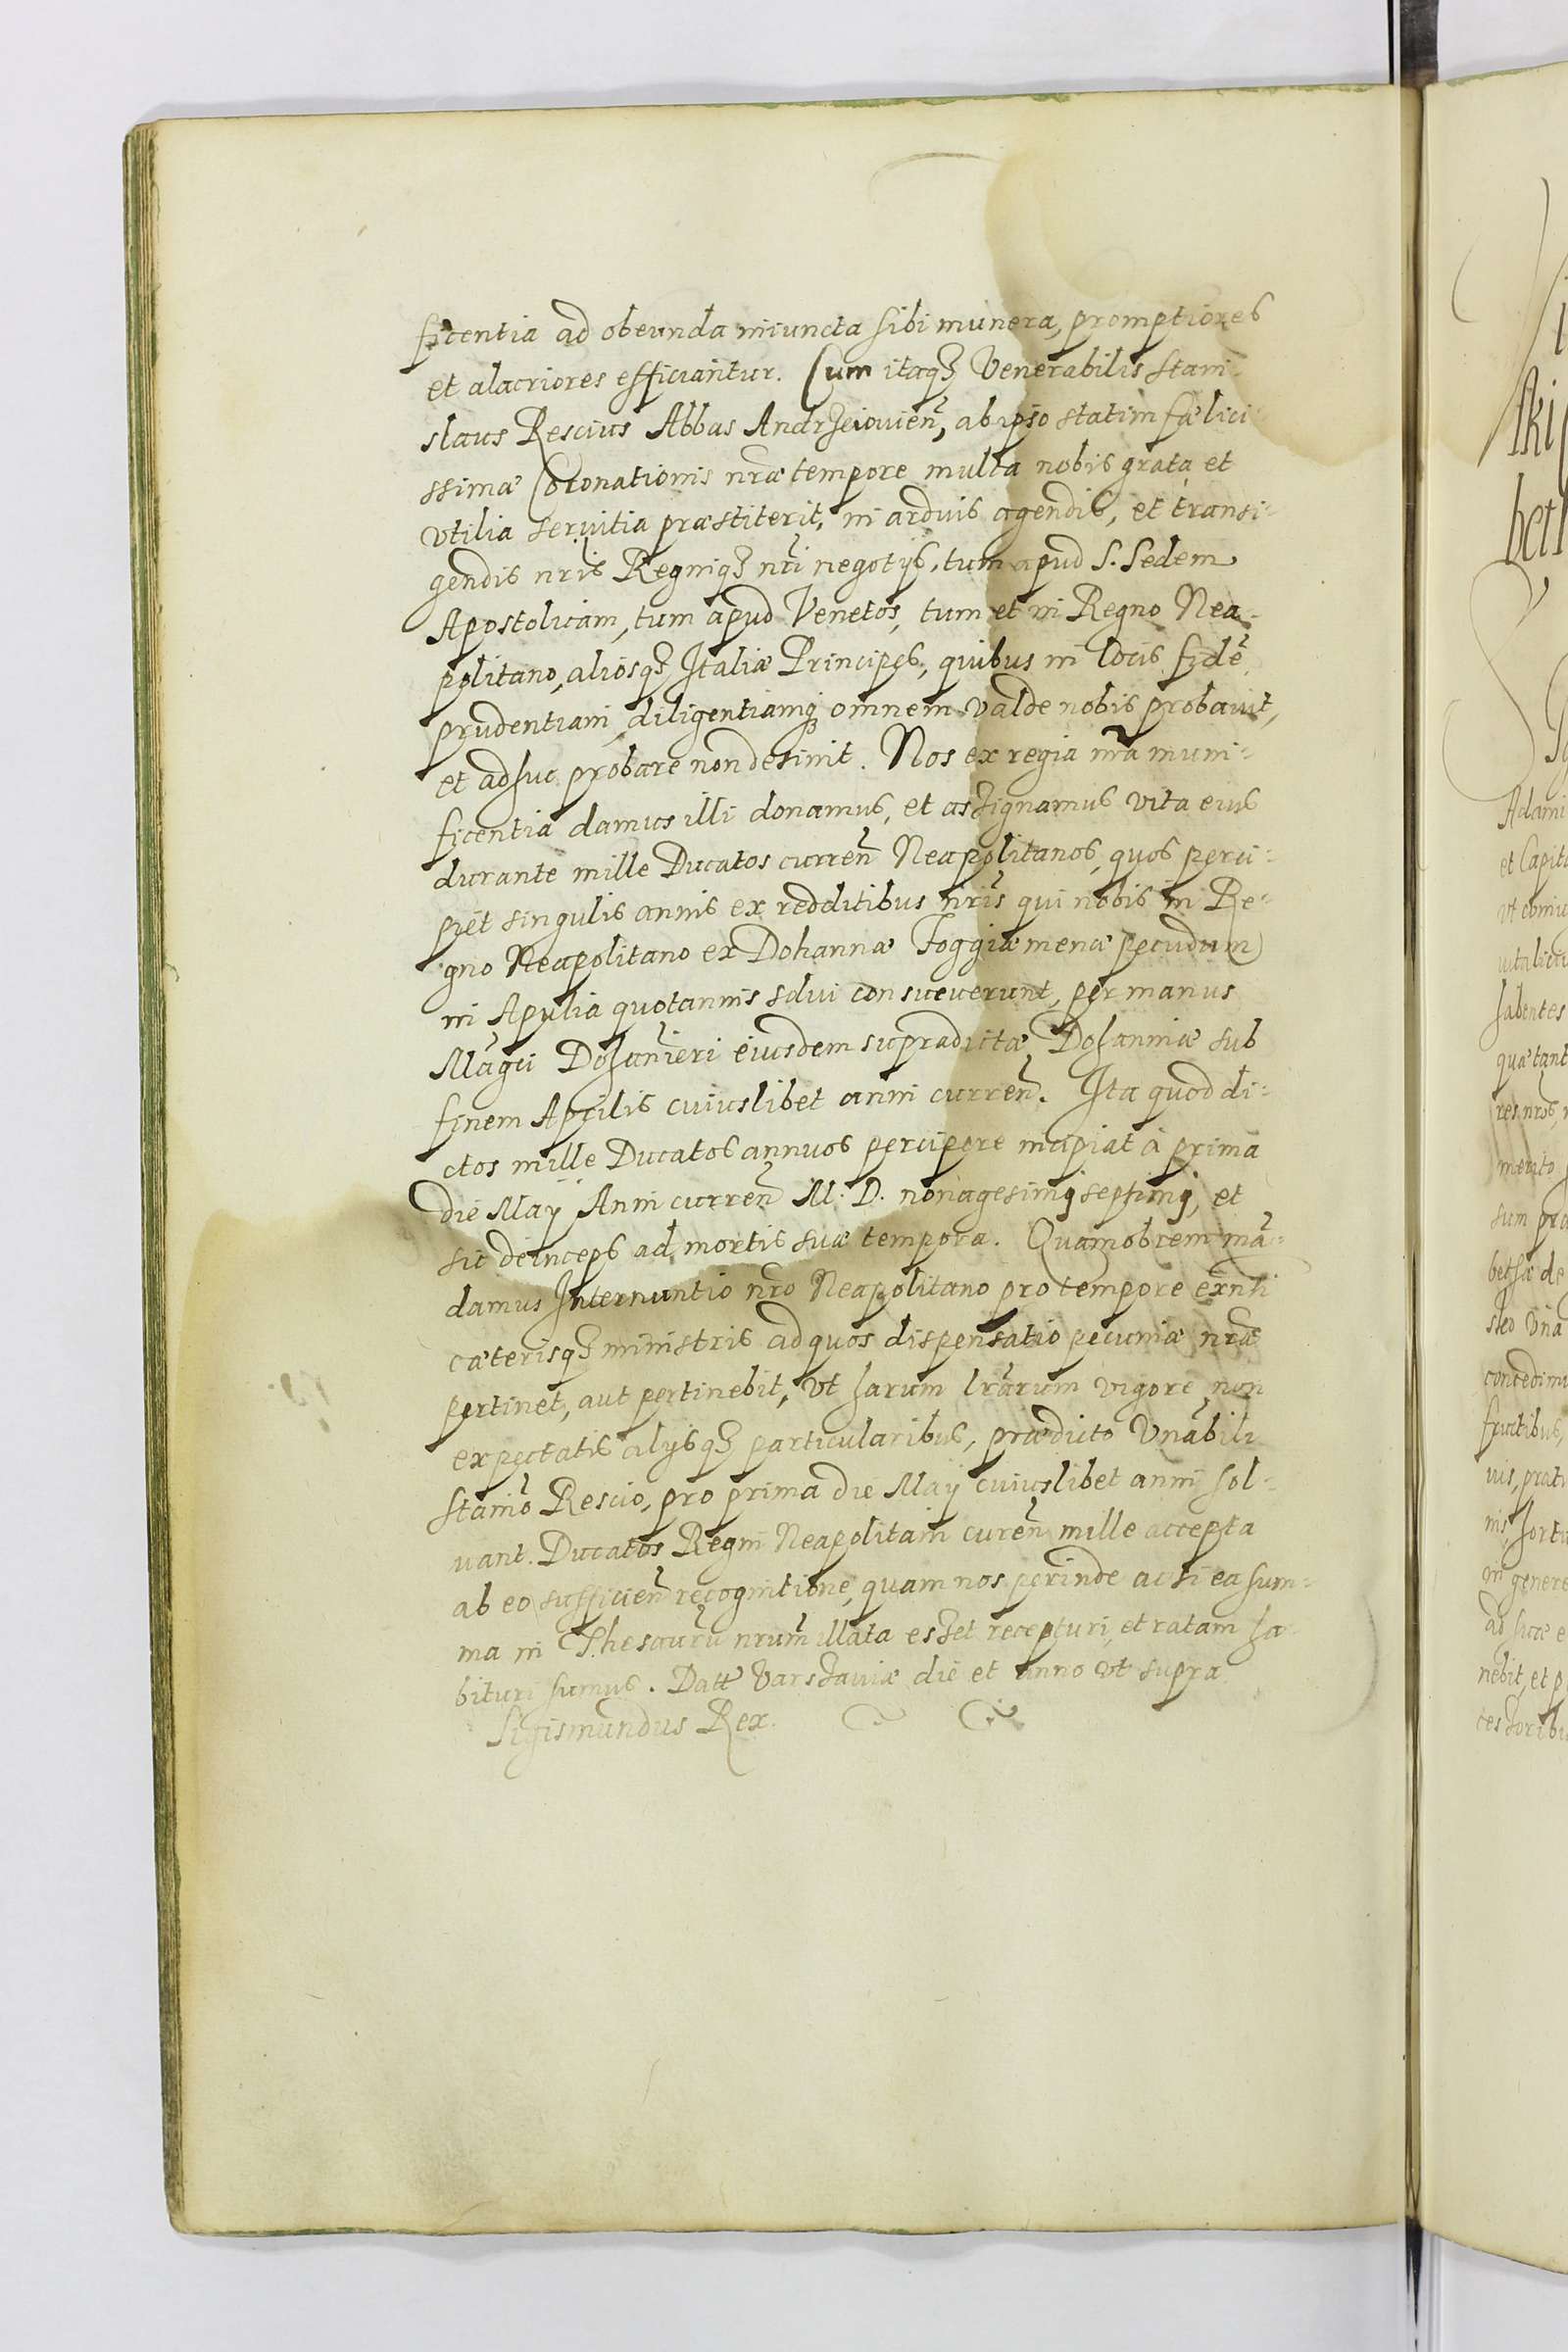 ficentia ad obeunda iniuncta sibi munera, promptiores
et alacriores efficiantur. Cum itaq3 Venerabilis Stani-
slaus Rescius Abbas Andrzeiouien̄, ab ipso statim fælici-
ssimæ Coronationis nr̄æ tempore multa nobis grata et
vtilia seruitia præstiterit, in arduis agendis, et transi-
gendis nr̄is Regniq3 nr̄i negotijs, tum apud S. Sedem
Apostolicam, tum apud Venetos, tum et in Regno Nea-
politano, aliosq3 Italiæ Principes, quibus in locis fidē
prudentiam, diligentiamq3 omnem valde nobis probauit,
et adhuc probare non desinit. Nos ex regia nr̄a muni-
ficentia damus illi donamus, et assignamus vita eius
durante mille Ducatos curren̄ Neapolitanos, quos perci-
piet singulis annis ex redditibus nr̄is qui nobis in Re-
gno Neapolitano ex Dohannæ Foggiæ menæ pecudum
in Apulia quotannis solui consueuerunt, per manus
Mag̃ci Dohan̄ieri eiusdem supradictæ Dohannæ sub
finem Aprilis cuiuslibet anni curren̄. Ita quod di-
ctos mille Ducatos annuos percipere incipiat à prima
die Maÿ Anni curren̄ M. D. nonagesimj septimj, et
sic deinceps ad mortis suæ tempora. Quamobrem mā-
damus Internuntio nr̄o Neapolitano pro tempore exn̄ti
cæterisq3 ministris ad quos dispensatio pecuniæ nr̄æ
pertinet, aut pertinebit, vt harum lr̄arum vigore non
expectatis alijsq3 particularibus, prædicto Vn̄abili
Stan̄io Rescio, pro prima die Maÿ cuiuslibet anni sol-
uant. Ducatos Regni Neapolitani curen̄ mille accepta
ab eo sufficien̄ recognitione, quam nos perinde ac si ea sum-
ma in Thesaurū nr̄um illata esset recepturi, et ratam ha-
bituri sumus. Datt Varssauiæ die et anno vt supra
Sigismundus Rex.
Adami
et Capita
vitalici
habentes
quæ tant
res nr̄os,
merito
sum pra
betha de
sleo vna
concedimu
fructibus,
uis, prati
nis, horti
in genere
ad suæ e
nebit, et p
cessoribu